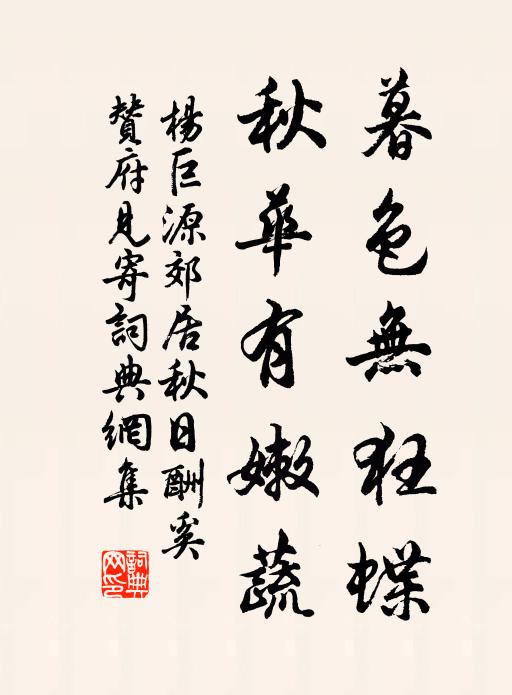 暮色無狂蝶
秋華有嫩蔬
楊巨源郊居秋日酬奚
贊府見寄詞典網集
詞典網印